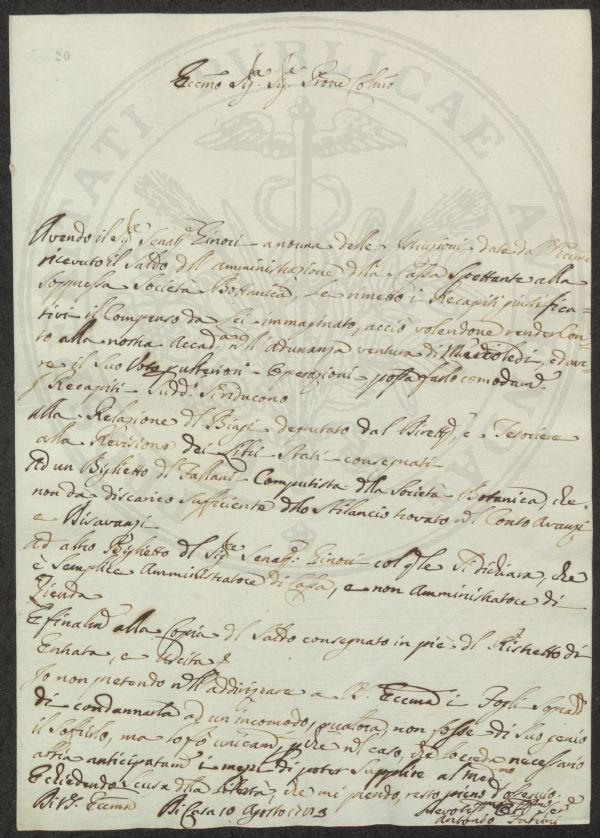 20
Eccmo Sig.re Sig.re Prone Colmo
Avendo il Sig.re Senat.re Ginori a norma delle Istruzioni date da V. Eccma
ricevuto il Saldo dell' amministrazione della Cassa Spettante alla
Soppressa Società Bottanica, Le rimetto i Recapiti giustifica=
tivi il Compenso da Lei immaginato, acciò volendone render Con=
to alla nostra Accad.a nell' Adunanza ventura di Mercoledì, ed ave=
re il Suo Voto possa farlo comodam.te
I Recapiti Sudd.i Si riducono
Alla Relazione del Biagi deputato dal Dirett.e, e Tesoriere
alla Revisione dei Libri Stati consegnati
Ad un Biglietto del Computista della Società Botanica, che
non dà discarico Sufficiente dello Sbilancio trovato nel Conto Avanzi
e Disavanzi
Ad altro Biglietto del Sig.re Senat.re Ginori col q.le Si dichiara, che
è Semplice Amministratore di Cassa, e non Amministratore di
Zienda
E finalm.e alla Copia del Saldo consegnato in piè del Ristretto di
Entrata, e Uscita
Io non pretendo nell' a V. Eccma i Fogli Sopradd.i
di condannarla ad un' incomodo, qualora non fosse di Suo genio
il Soffrirlo, ma lo fò unicam.e p.chè nel caso, che lo creda necessario
abbia anticipatam.e i mezzi di poter Supplire al med.mo
E chiedendo Scusa della libertà, che mi prendo, resto pieno d' ossequio
Di V.ra Eccma
Di Casa 10 Agosto 1783
Antonio
SIGILLUM
PUBLICAE